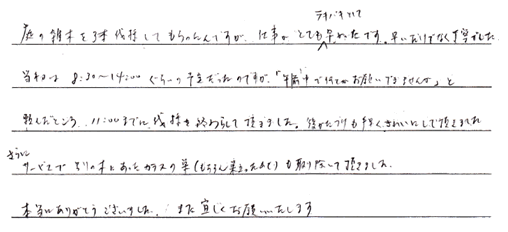 テキパキしていて
庭の雑木を3本伐採してもらったんですが、仕事がとても早かったです。早いだけでなく丁寧でした。
当初は 8:30～14:00ぐらいの予定だったのですが、「午前中で何とかお願いできませんか」と
頼んだところ、11:00までに伐採を終わらして頂きました。後かたづけも早くきれいにして頂きました
さらに
サービスで となりの木にあったカラスの巣(もちろん巣立ったあと)も取り除いて頂きました。
本当にありがとうございました。また宜しくお願いいたします